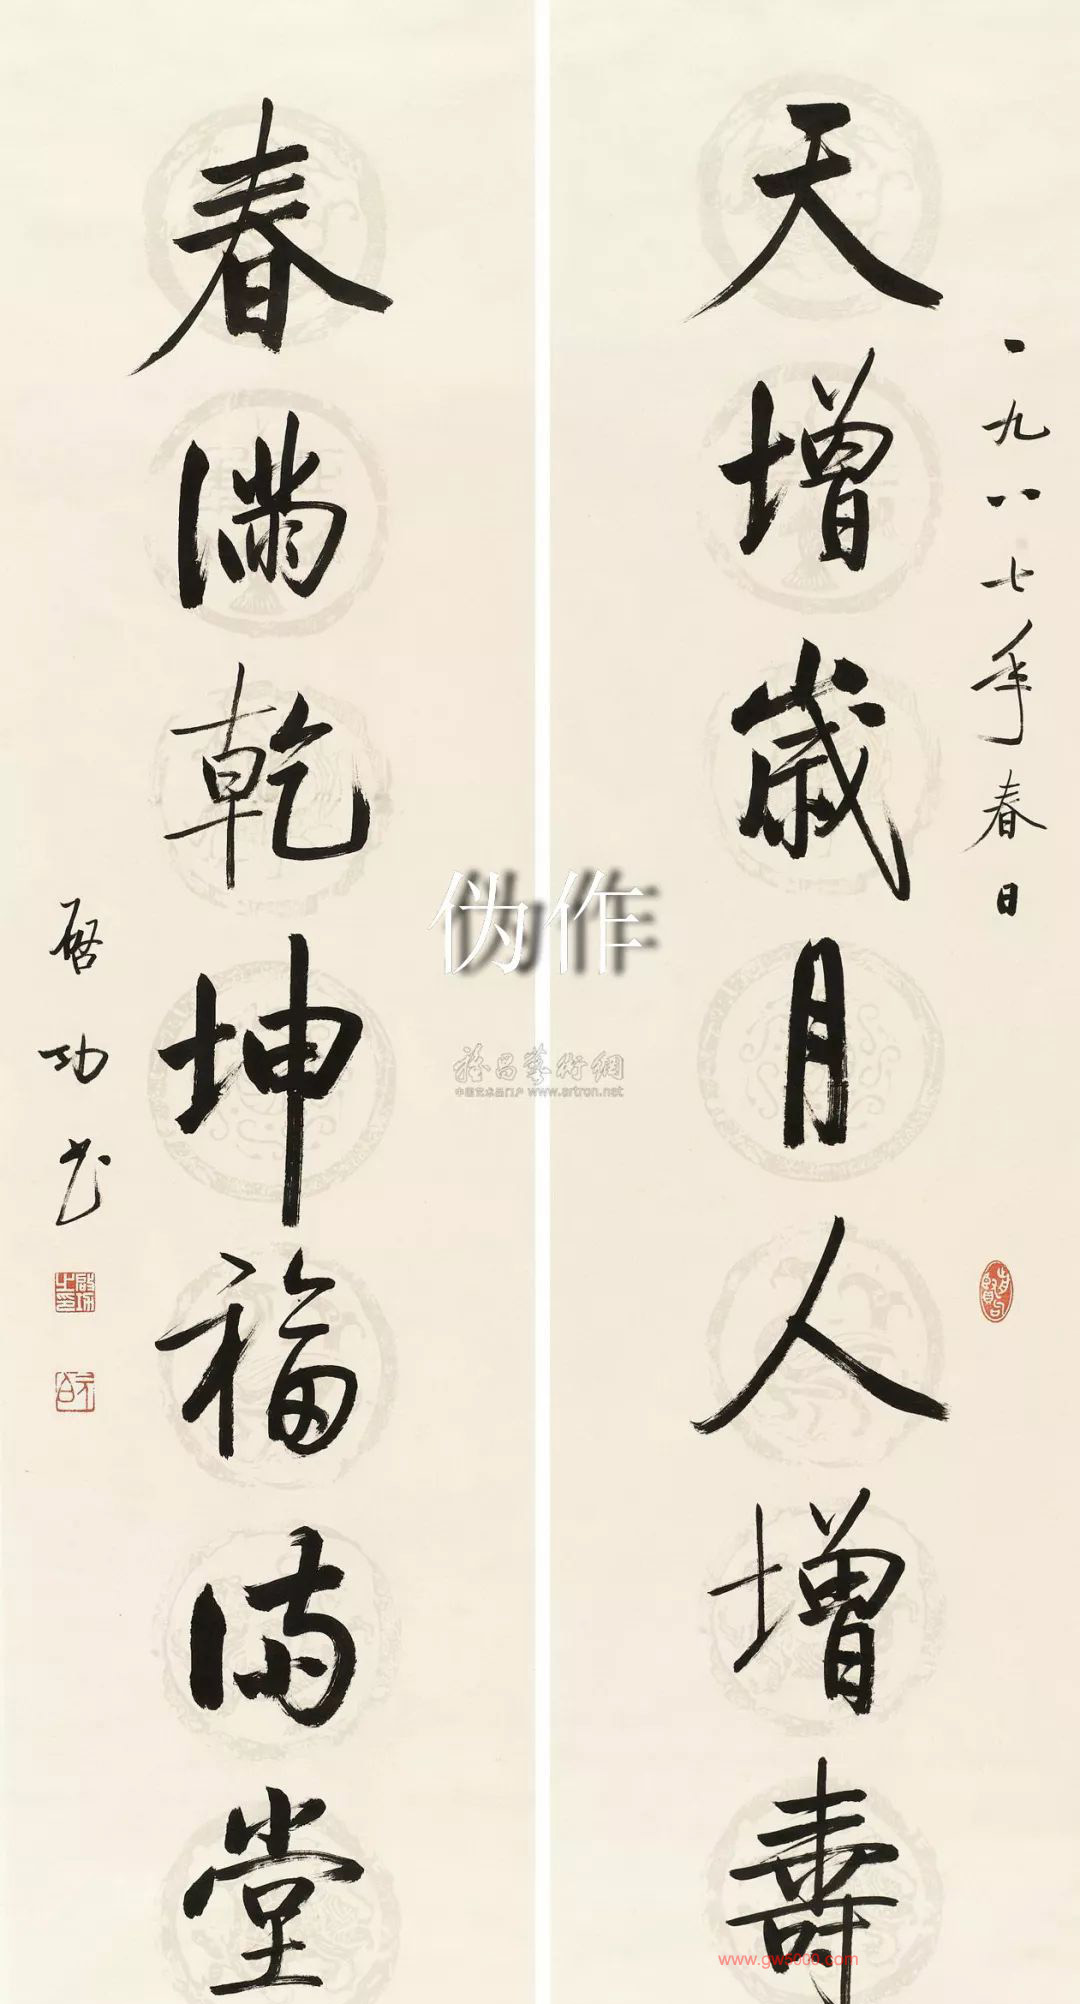 天增歲月人增壽
一九八七年春日
春滿乾坤福满堂
启功书
启功之印
伪作
雅昌藝術網
中国艺术品门户 www.artron.net
www.gw5000.com